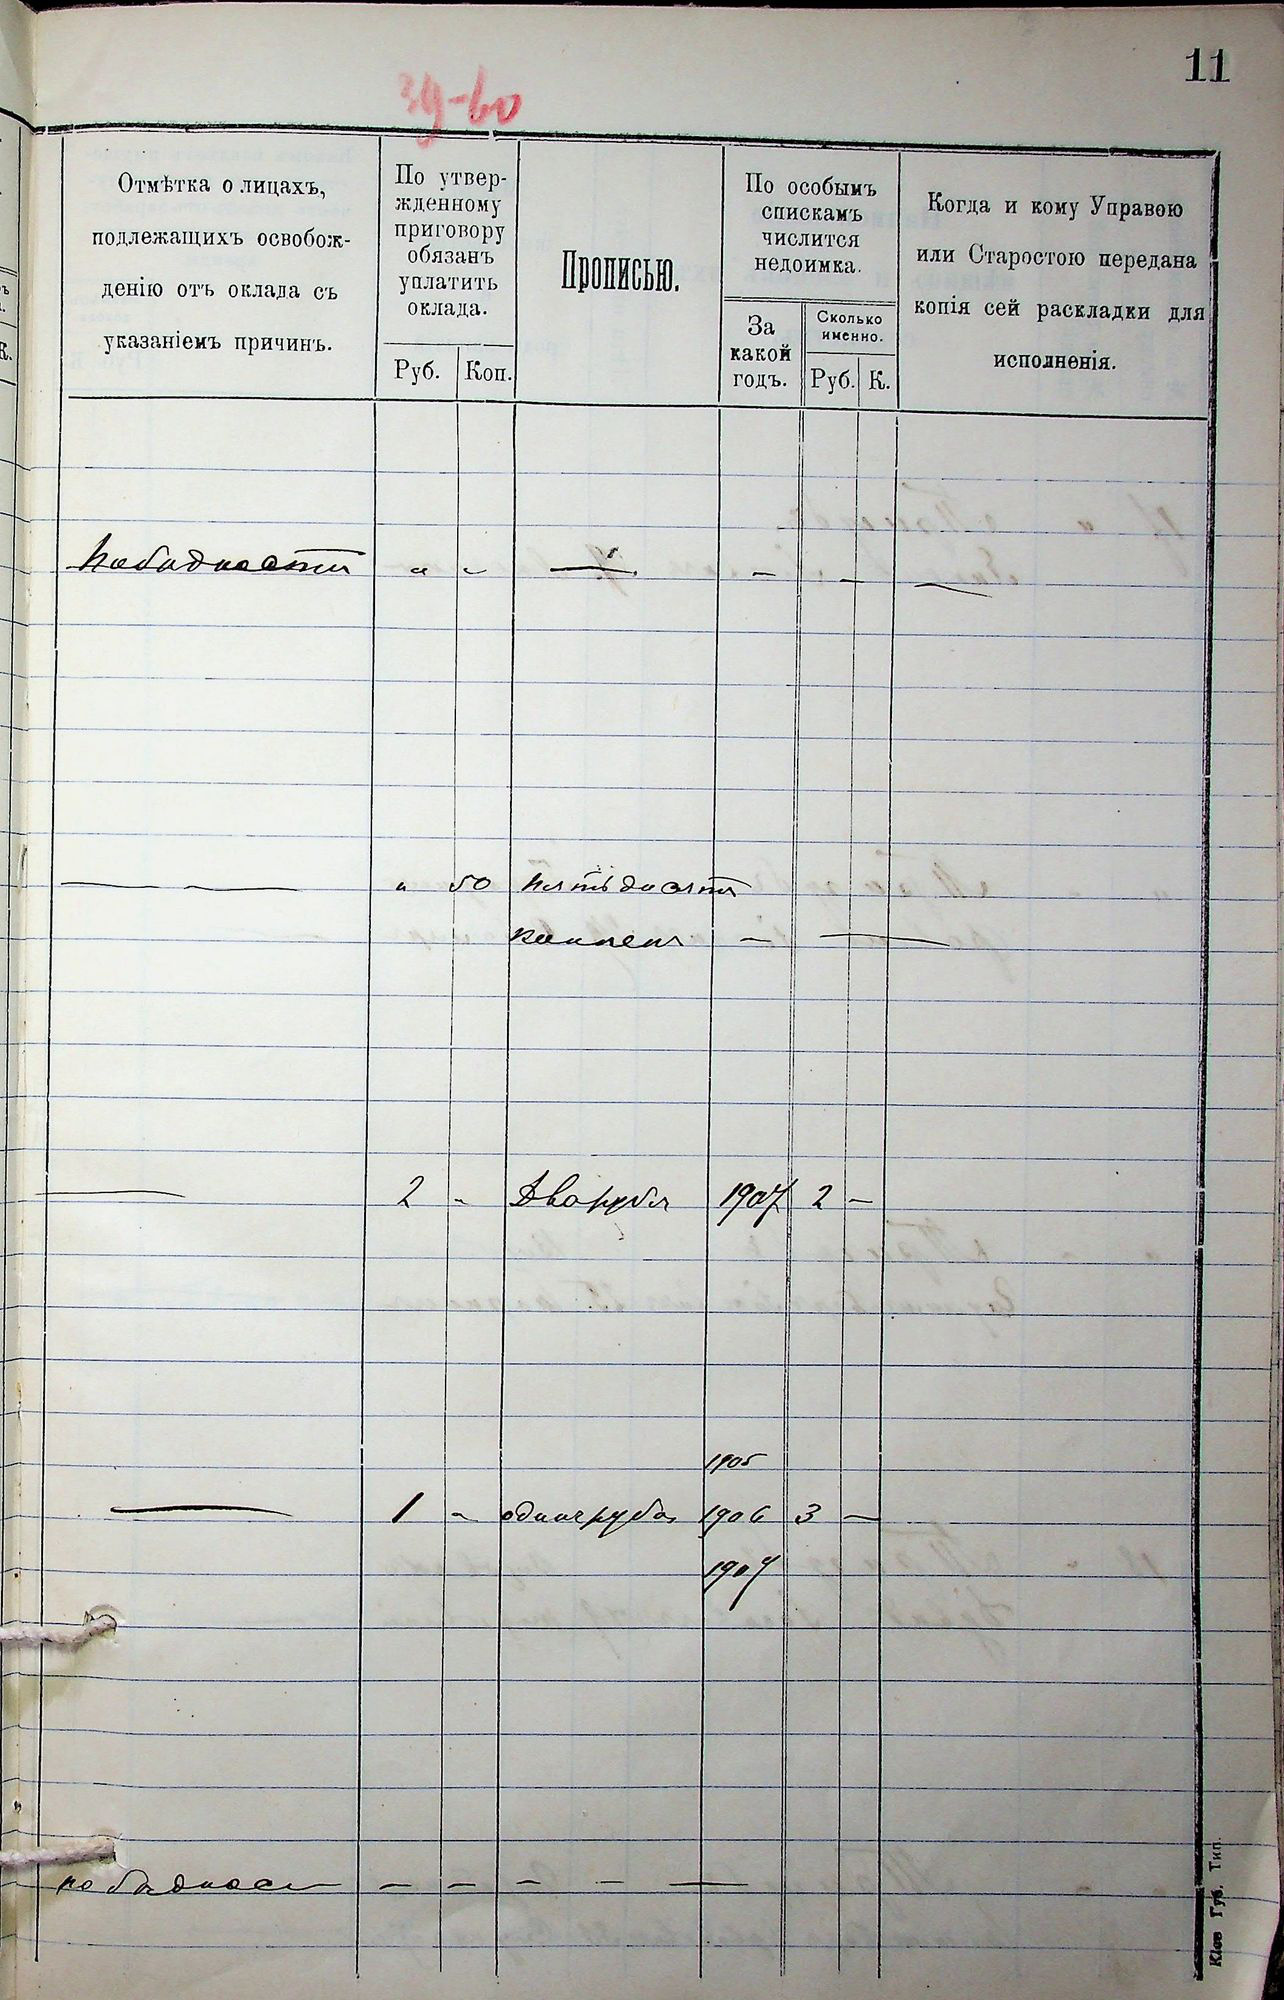 11
39-60
Отмѣтка о лицахъ,
подлежащихъ освобож-
денію отъ оклада съ
указаніемъ причинъ.
По утвер-
жденному
приговору
обязанъ
уплатить
оклада.
Руб. Коп.
Прописью.
По особымъ
спискамъ
числится
недоимка.
За
какой
годъ.
Сколько
именно.
Руб. К.
Когда и кому Управою
или Старостою передана
копія сей раскладки для
исполненія.
По бѣдности " " — — — —
— — " 50 Пятьдесятъ
копѣекъ — —
— 2 " Два рубля 1907 2 —
1905
— 1 " одинъ рубль 1906 3 —
1907
по бѣдност — — — — —
Кіев Губ. Тип.